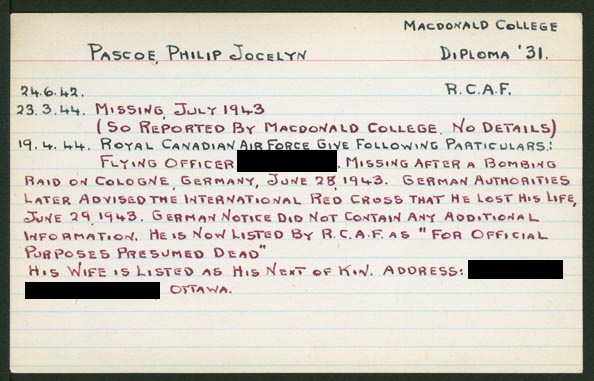 MACDONALD COLLEGE
PASCOE, PHILIP JOCELYN DIPLOMA '31.
24.6.42. R.C.A.F.
23.3.44. MISSING, JULY 1943
(SO REPORTED BY MACDONALD COLLEGE. NO DETAILS)
19.4.44. ROYAL CANADIAN AIR FORCE GIVE FOLLOWING PARTICULARS:
FLYING OFFICER . MISSING AFTER A BOMBING
RAID ON COLOGNE, GERMANY, JUNE 28, 1943. GERMAN AUTHORITIES
LATER ADVISED THE INTERNATIONAL RED CROSS THAT HE LOST HIS LIFE,
JUNE 29, 1943. GERMAN NOTICE DID NOT CONTAIN ANY ADDITIONAL
INFORMATION. HE IS NOW LISTED BY R.C.A.F. AS "FOR OFFICIAL
PURPOSES PRESUMED DEAD"
HIS WIFE IS LISTED AS HIS NEXT OF KIN. ADDRESS:
OTTAWA.